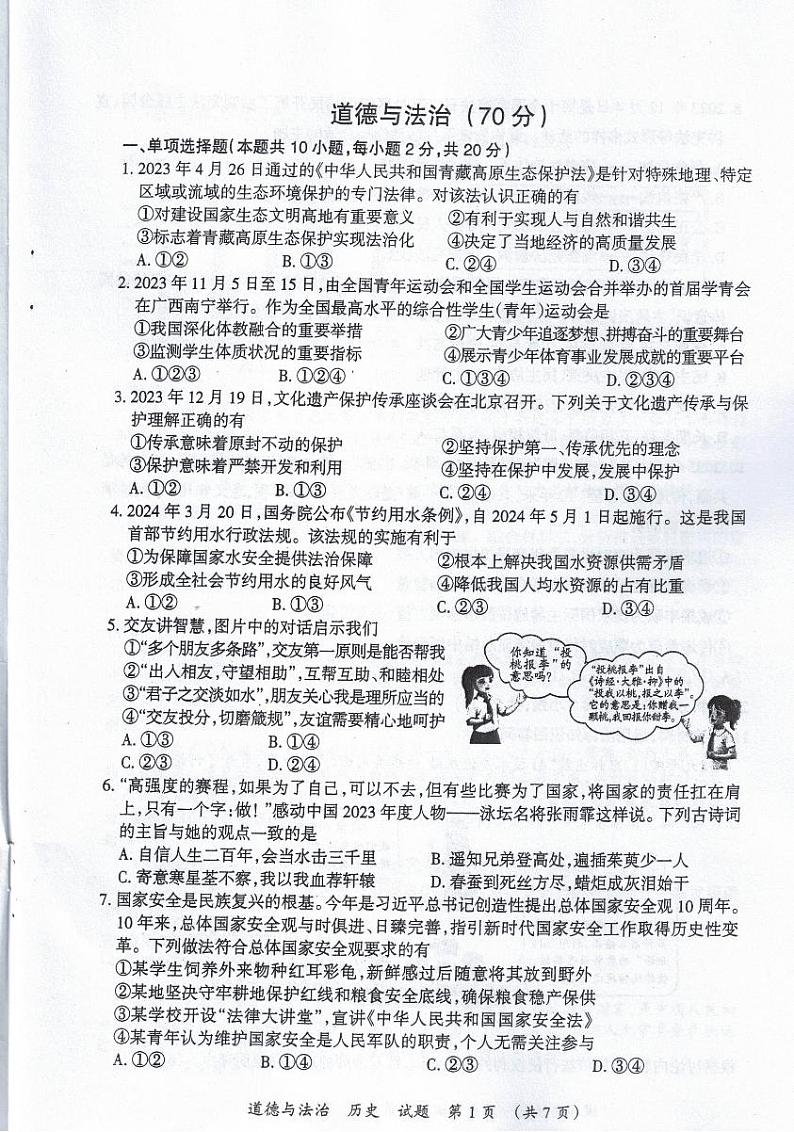 道德与法治（70分）
一、单项选择题（本题共10小题，每小题2分，共20分）
1. 2023年4月26日通过的《中华人民共和国青藏高原生态保护法》是针对特殊地理、特定
区域或流域的生态环境保护的专门法律。对该法认识正确的有
①对建设国家生态文明高地有重要意义 ②有利于实现人与自然和谐共生
③标志着青藏高原生态保护实现法治化 ④决定了当地经济的高质量发展
A. ①② B. ①③ C. ②④ D. ③④
2. 2023年11月5日至15日，由全国青年运动会和全国学生运动会合并举办的首届学青会
在广西南宁举行。作为全国最高水平的综合性学生（青年）运动会是
①我国深化体教融合的重要举措 ②广大青少年追逐梦想、拼搏奋斗的重要舞台
③监测学生体质状况的重要指标 ④展示青少年体育事业发展成就的重要平台
A. ①②③ B. ①②④ C. ①③④ D. ②③④
3. 2023年12月19日，文化遗产保护传承座谈会在北京召开。下列关于文化遗产传承与保
护理解正确的有
①传承意味着原封不动的保护 ②坚持保护第一、传承优先的理念
③保护意味着严禁开发和利用 ④坚持在保护中发展，发展中保护
A. ①② B. ①③ C. ②④ D. ③④
4. 2024年3月20日，国务院公布《节约用水条例》，自2024年5月1日起施行。这是我国
首部节约用水行政法规。该法规的实施有利于
①为保障国家水安全提供法治保障 ②根本上解决我国水资源供需矛盾
③形成全社会节约用水的良好风气 ④降低我国人均水资源的占有比重
A. ①② B. ①③ C. ②③ D. ③④
5. 交友讲智慧，图片中的对话启示我们
①“多个朋友多条路”，交友第一原则是能否帮我
②“出入相友，守望相助”，互帮互助、和睦相处
③“君子之交淡如水”，朋友关心我是理所应当的
④“交友投分，切磨箴规”，友谊需要精心地呵护
A. ①③ B. ①④
C. ②③ D. ②④
你知道“投
桃报李”的
意思吗？
“投桃报李”出自
《诗经·大雅·抑》中的
“投我以桃，报之以李”。
它的意思是：你赠我一
颗桃，我回报你甜李。
6. “高强度的赛程，如果为了自己，可以不去，但有些比赛为了国家，将国家的责任扛在肩
上，只有一个字：做！”感动中国2023年度人物——泳坛名将张雨霏这样说。下列古诗词
的主旨与她的观点一致的是
A. 自信人生二百年，会当水击三千里 B. 遥知兄弟登高处，遍插茱萸少一人
C. 寄意寒星荃不察，我以我血荐轩辕 D. 春蚕到死丝方尽，蜡炬成灰泪始干
7. 国家安全是民族复兴的根基。今年是习近平总书记创造性提出总体国家安全观10周年。
10年来，总体国家安全观与时俱进、日臻完善，指引新时代国家安全工作取得历史性变
革。下列做法符合总体国家安全观要求的有
①某学生饲养外来物种红耳彩龟，新鲜感过后随意将其放到野外
②某地坚决守牢耕地保护红线和粮食安全底线，确保粮食稳产保供
③某学校开设“法律大讲堂”，宣讲《中华人民共和国国家安全法》
④某青年认为维护国家安全是人民军队的职责，个人无需关注参与
A. ①② B. ①④ C. ②③ D. ③④
道德与法治 历史 试题 第1页 （共7页）